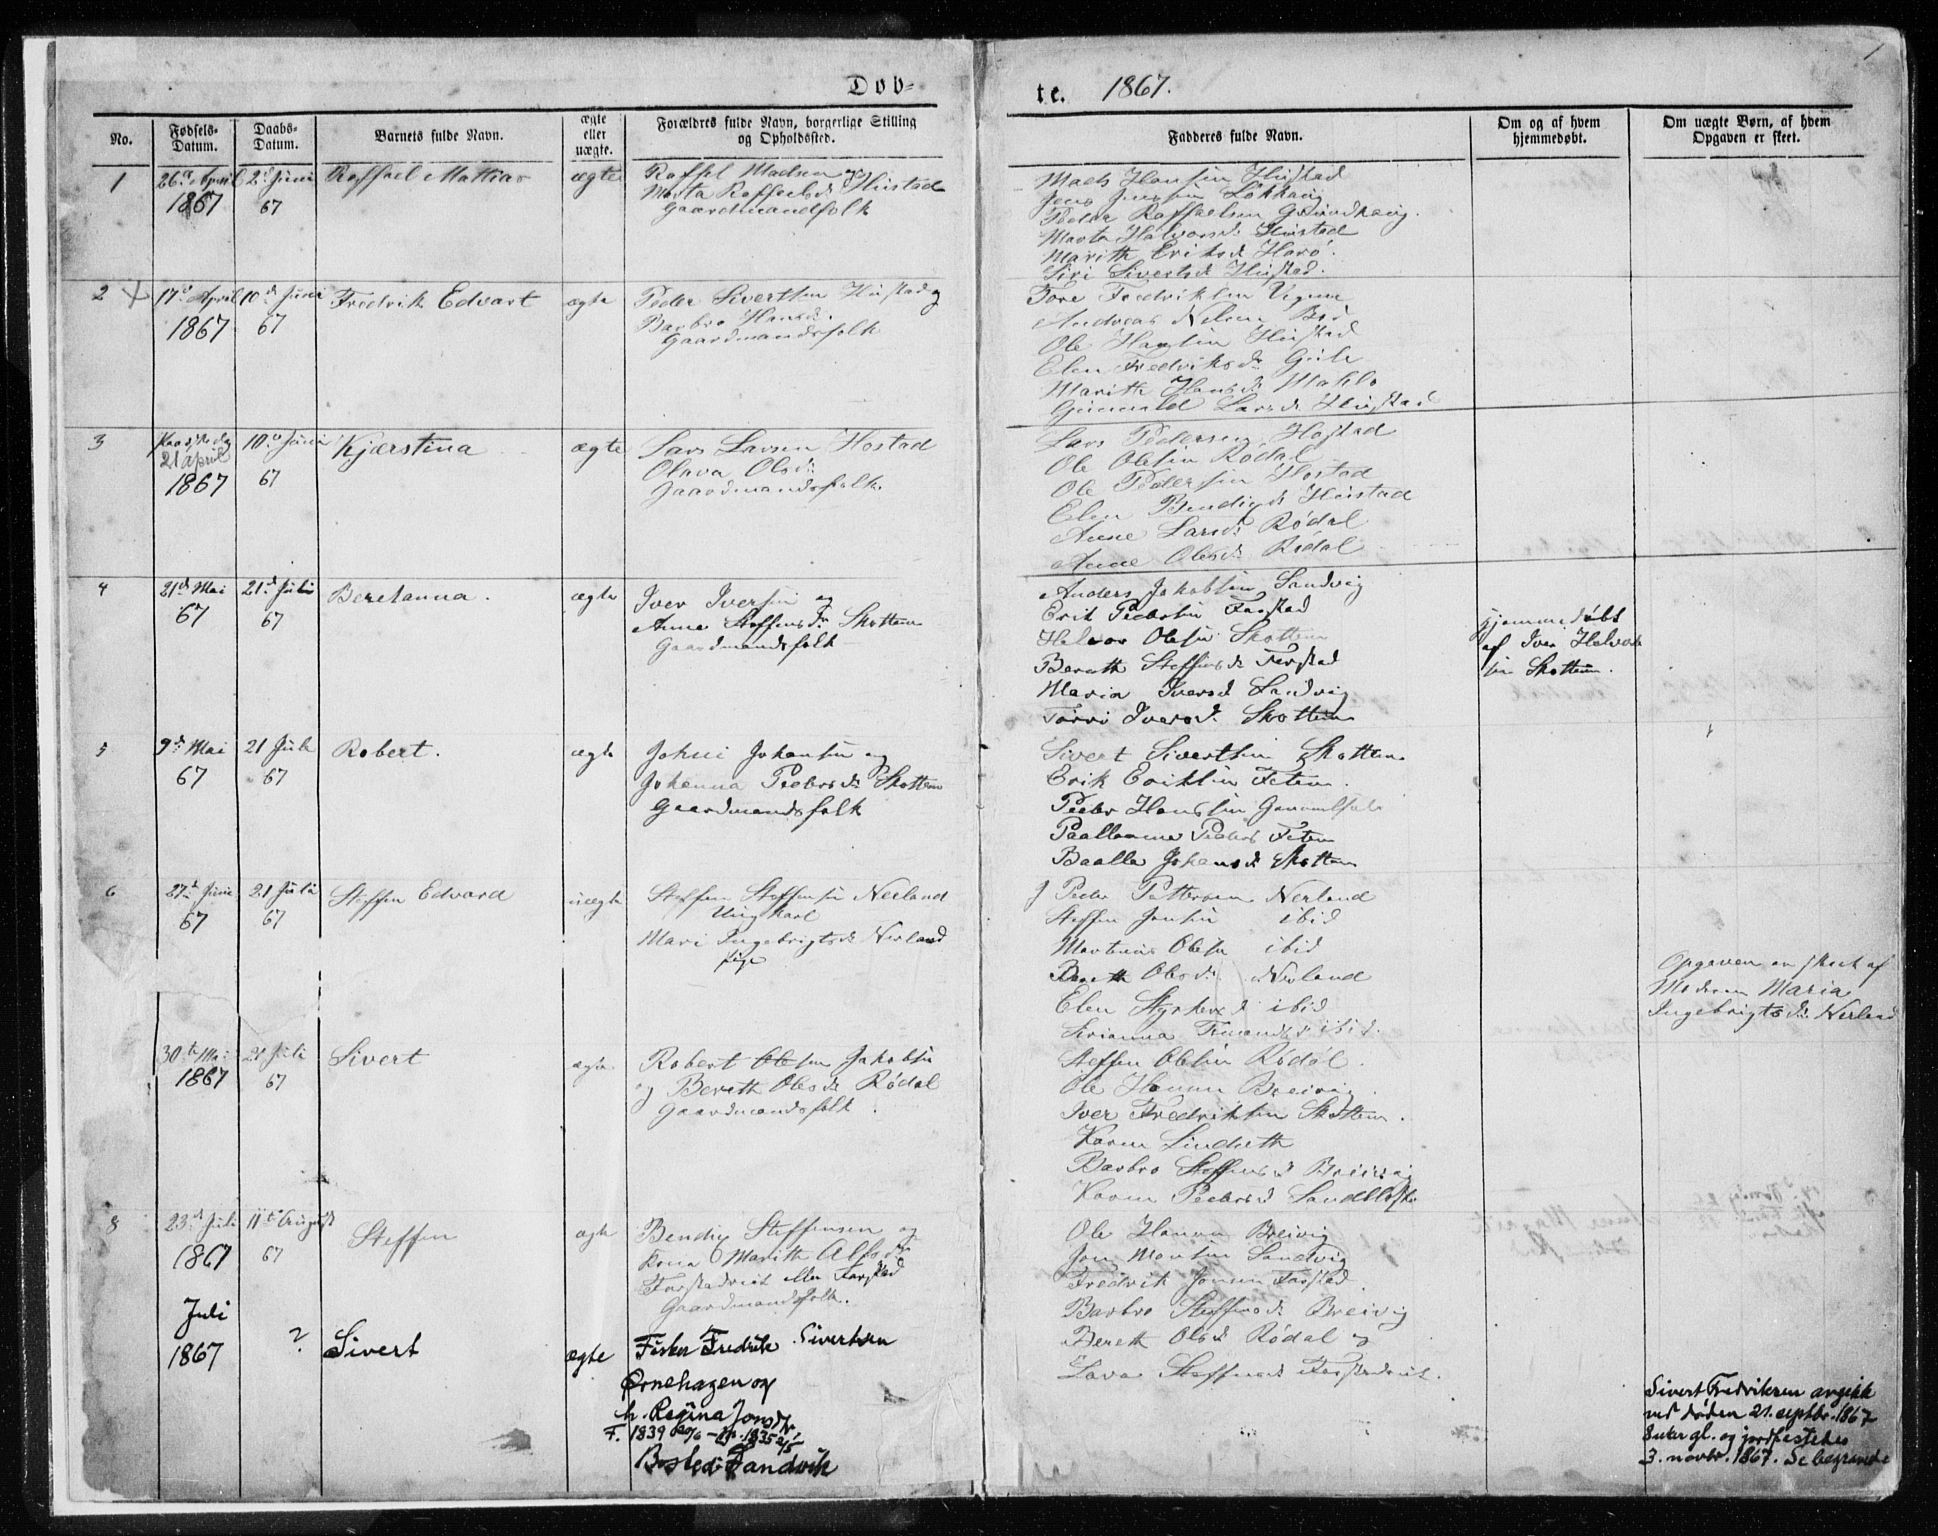 Dob-
te. 1867.
No.
Fødsels-
Datum.
Daabs-
Datum.
Barnets fulde Navn.
ægte
eller
uægte.
Forældres fulde Navn, borgerlige Stilling
og Opholdssted.
Fadderes fulde Navn.
Om og af hvem
hjemmedøbt.
Om uægte Børn, af hvem
Opgaven er skeet.
1
26 April
1867
2d Juni
67
Raffael Mattias
ægte
Raffel Madsen og
Marta Raffaelsd. Hustad
Gaardmandfolk
Mads Hansen Hustad
Jens Jensen
Peder Raffaelsen
Marta Halvorsd. Hustad
Marith Eriksd. Harø.
Siri Sivertsd. Hustad.
2
17d April
1867
10d Juni
67
Fredrik Edvart
ægte
Peder Sivertsen Hustad og
Barbro Hansd.
Gaardmandsfolk
Tore Fredriksen
Andreas Nelsen
Ole Hansen Hustad
Elen Fredriksd.
Marith Hansd.
Gunnild Larsd. Hustad
3
Paaskedag
21 April
1867
10d Juni
67
Kjærstina
ægte
Lars Larsen Hostad
Olava Olsd.
Gaardmandsfolk.
Lars Pedersen Hostad
Ole Olesen Rødal
Ole Pedersen Hostad
Elen Bendigsd. Hustad
Anne Larsd. Rødal
Anne Olesd. Rødal
4
21d Mai
67
21d Juli
67
Beretanna.
ægte
Iver Iversen og
Anne Steffensdr. Skottem
Gaardmandsfolk
Anders Jakobsen Sandvig
Erik Pedersen Farstad
Halvor Olesen Skottem
Bereth Steffensd. Farstad
Maria Iversd. Sandvig
Iversd. Skottem
Hjemmedøbt
af Iver Halvor-
sen Skottem.
5
9d Mai
67
21 Juli
67
Robert.
ægte
Johan Johansen og
Johanna Pedersd. Skottem
Gaardmandsfolk
Sivert Sivertsen Skottem
Erik Eriksen Feten.
Peder Hansen
Peders Feten
Johansd. Skottem
6
27d Juni
67
21 Juli
67
Steffen Edvard
uægte
Steffen Steffensen Nerland
Ungkarl
Mari Ingebrigtsd. Nerland
pige
Peder Pettersen Nerland
Steffen Jonsen ibid
Martinus Olesen ibid
Bereth Olesd. Nerland
Elen Styrkersd. ibid
ibid.
Opgaven er skeet af
Moderen Maria
Ingebrigtsd. Nerland
30te Mai
1867
21 Juli
67
Sivert
ægte
Robert Olesen Jakobsen
og Bereth Olesd. Rødal
Gaardmandsfolk.
Steffen Olesen Rødal.
Ole Hansen Breivig.
Iver Fredriksen Skottem.
Karen Lindseth
Barbro Steffensd. Breivig
Karen Pedersd.
8
23d Juli
1867
11te August
67
Steffen
ægte
Bendix Steffensen og
Marith Alfsdr.
eller Farstad
Gaardmandsfolk.
Ole Hansen Breivig
Jon Monsen Sandvig
Fredrik Jonsen Farstad.
Barbro Steffensd. Breivig
Bereth Olesd. Rødal og
Lava Steffensd.
Juli
1867
?
Sivert
ægte
Fisker Fredrik Sivertsen
Ørnehagen og
h. Regina Jonsdr
F. 1839 20/6 - 1835 2/5
Bosted: Sandvik
Sivert Fredriksen avgikk
ved døden 21. septbr. 1867
8 uker gl. og jordfestedes
3. novbr. 1867. Se begravede